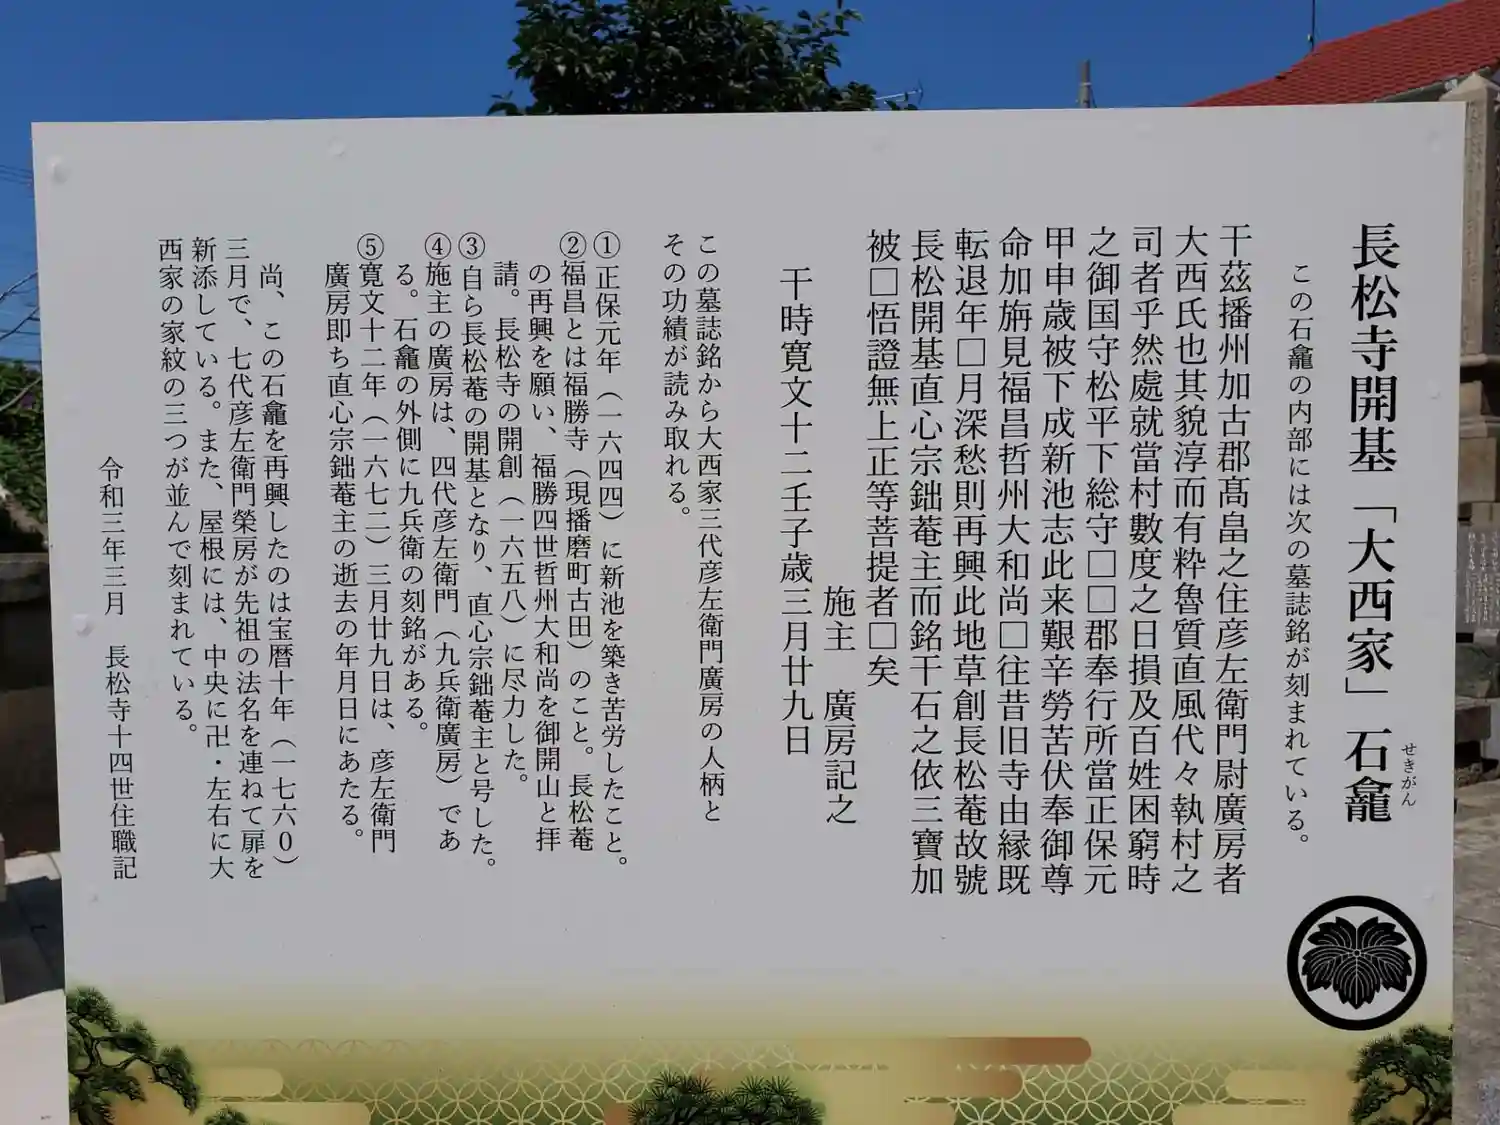 長松寺開基「大西家」石龕
せきがん
この石龕の内部には次の墓誌銘が刻まれている。
干茲播州加古郡髙畠之住彦左衛門尉廣房者
大西氏也其貌淳而有粋魯質直風代々執村之
司者乎然處就當村數度之日損及百姓困窮時
之御国守松平下総守□□郡奉行所當正保元
甲申歳被下成新池志此来艱辛勞苦伏奉御尊
命加旃見福昌哲州大和尚□往昔旧寺由縁既
転退年□月深愁則再興此地草創長松菴故號
長松開基直心宗鈯菴主而銘干石之依三寶加
被□悟證無上正等菩提者□矣
施主　廣房記之
干時寛文十二壬子歳三月廿九日
この墓誌銘から大西家三代彦左衛門廣房の人柄と
その功績が読み取れる。
①正保元年（一六四四）に新池を築き苦労したこと。
②福昌とは福勝寺（現播磨町古田）のこと。長松菴
の再興を願い、福勝四世哲州大和尚を御開山と拝
請。長松寺の開創（一六五八）に尽力した。
③自ら長松菴の開基となり、直心宗鈯菴主と号した。
④施主の廣房は、四代彦左衛門（九兵衛廣房）であ
る。石龕の外側に九兵衛の刻銘がある。
⑤寛文十二年（一六七二）三月廿九日は、彦左衛門
廣房即ち直心宗鈯菴主の逝去の年月日にあたる。
尚、この石龕を再興したのは宝暦十年（一七六０）
三月で、七代彦左衛門榮房が先祖の法名を連ねて扉を
新添している。また、屋根には、中央に卍・左右に大
西家の家紋の三つが並んで刻まれている。
令和三年三月　長松寺十四世住職記